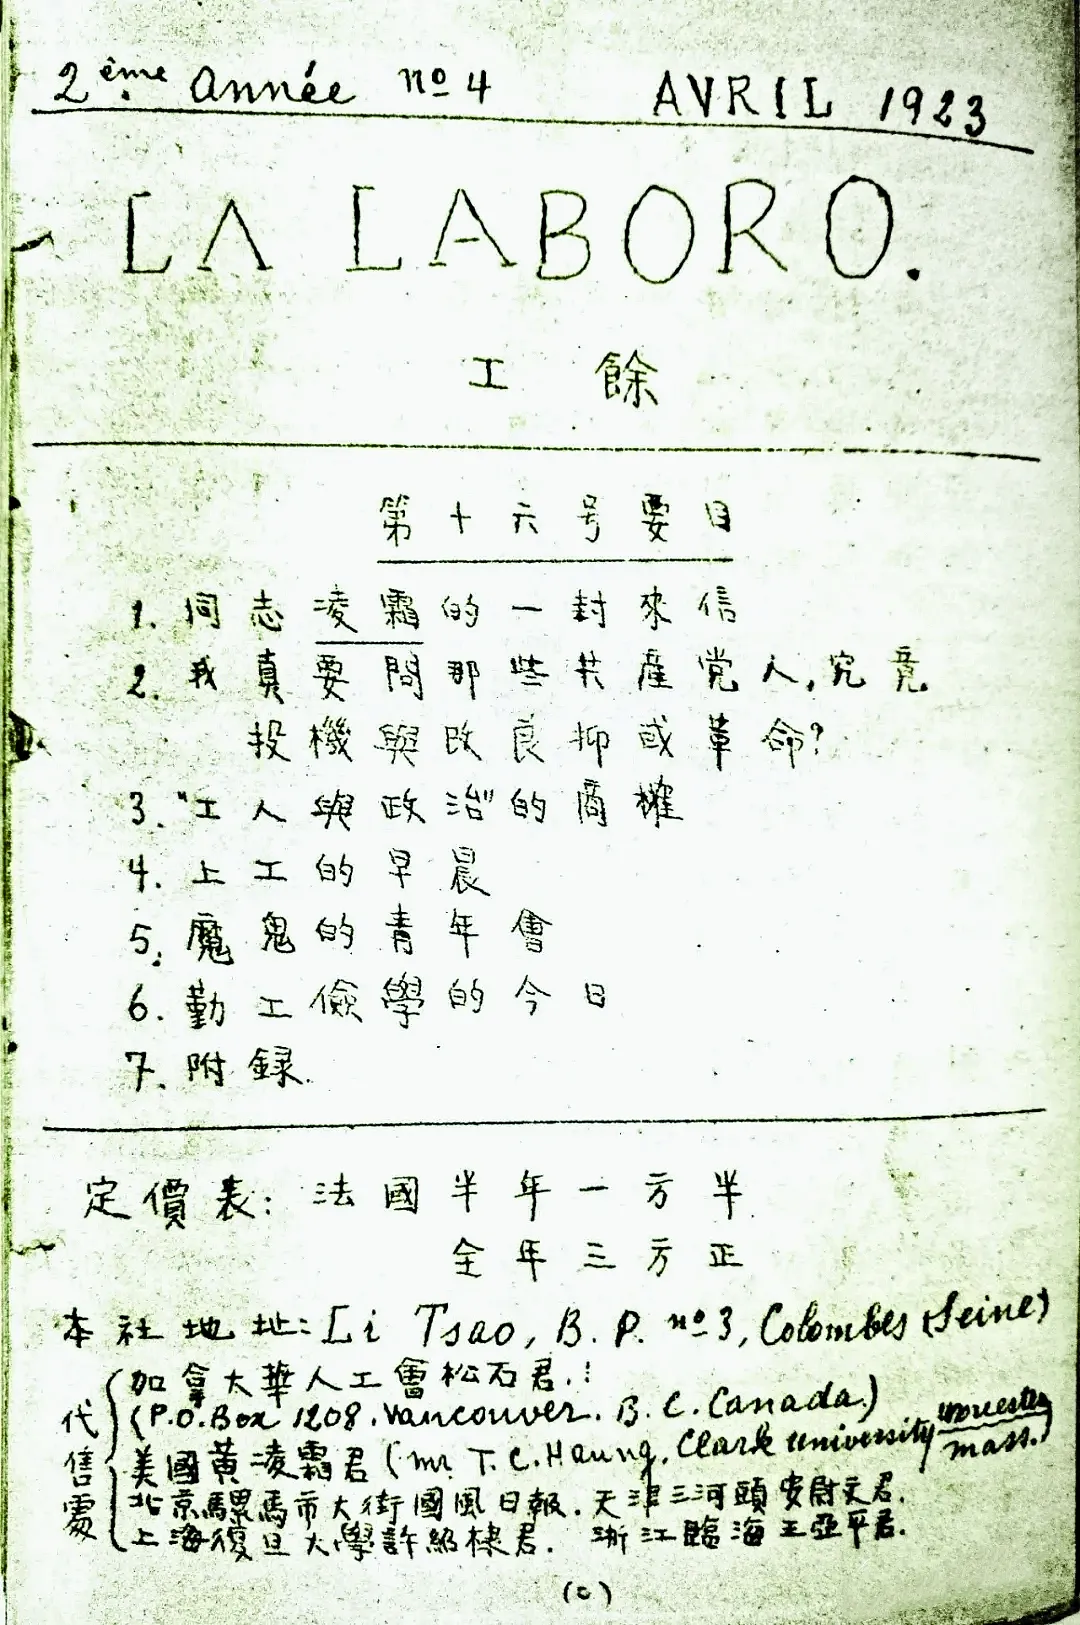 2ème année nº 4 AVRIL 1923
LA LABORO.
工餘
第十六号要目
1. 同志凌霜的一封來信
2. 我真要問那些共產党人,究竟
投機與改良抑或革命?
3. "工人與政治"的商榷
4. 上工的早晨
5. 魔鬼的青年會
6. 勤工儉學的今日
7. 附録.
定價表: 法國半年一方半
全年三方正
本社地址: Li Tsao, B. P. nº 3, Colombes (Seine)
代售處
加拿大華人工會松石君.
(P.O.Box 1208. Vancouver. B. C. Canada.)
美國黃凌霜君 (mr. T. C. Haung, Clark university Worcester mass.)
北京騾馬市大街國風日報. 天津三河頭安尉文君.
上海復旦大學許紹棣君. 浙江臨海王亞平君.